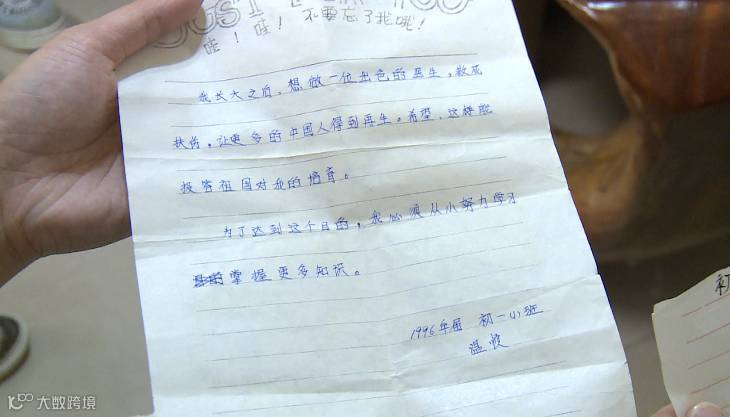 JUST
哇！哇！不要忘了我哦！
我长大之后，想做一位出色的医生，救死
扶伤，让更多的中国人得到再生。希望，这样能
报答祖国对我的培育。
为了达到这个目的，我必须从小努力学习
掌握更多知识。
1996年届 初一小班
温悛
初
大数跨境